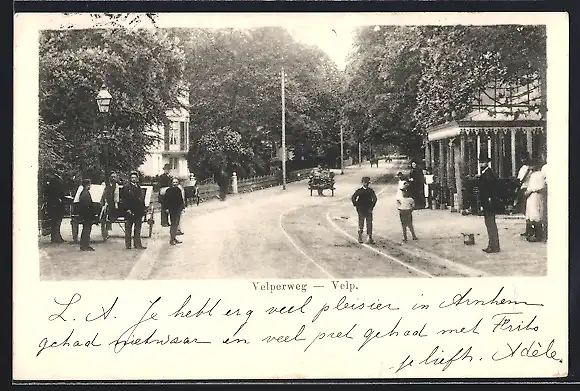 Velperweg — Velp.
L. A. Je hebt erg veel pleisier in Arnhem
gehad nietwaar en veel pret gehad met Frits
je lieft. Adèle.